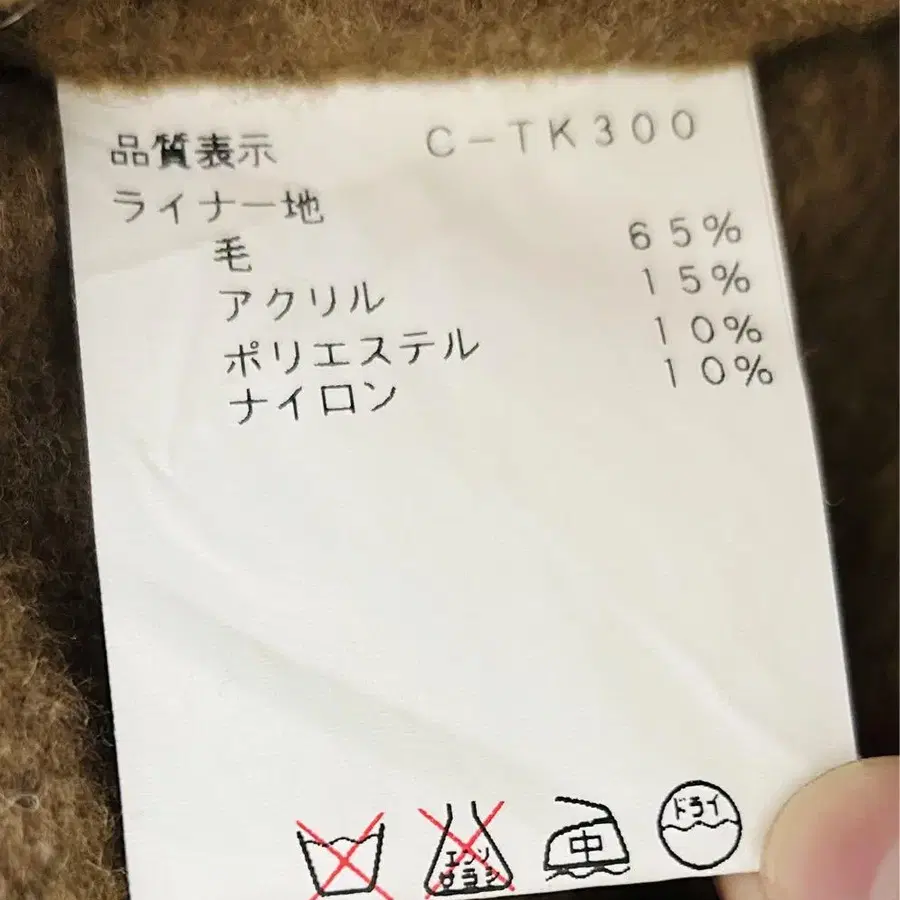 品質表示 C-TK300
ライナー地
毛 65%
アクリル 15%
ポリエステル 10%
ナイロン 10%
エンソ
サラシ
中
ドライ